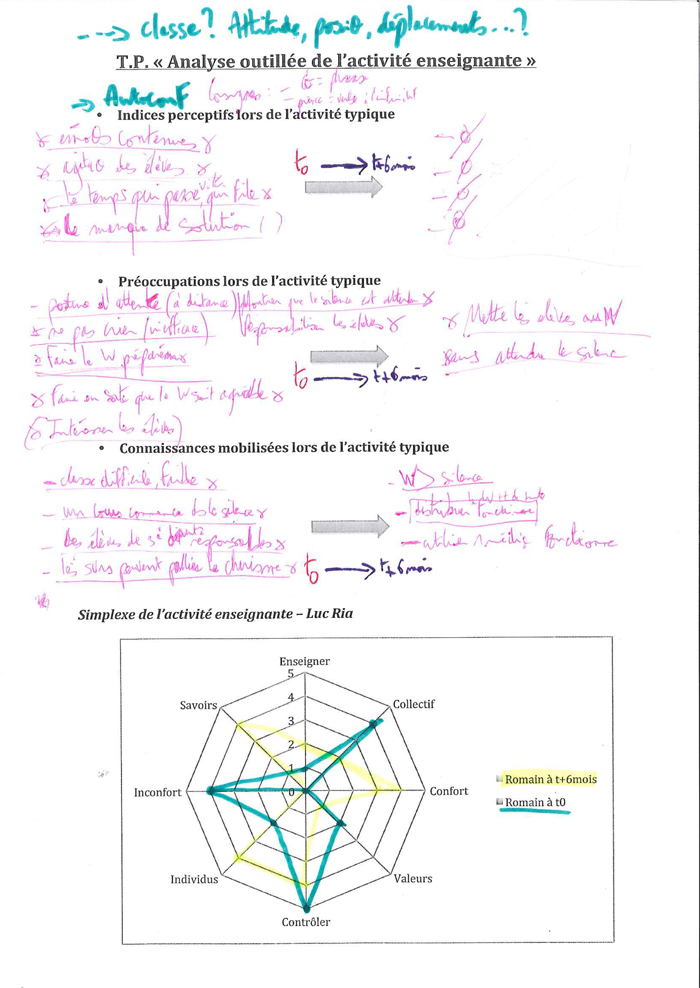 ---> classe? Attitude, posit°, déplacements...?
T.P. « Analyse outillée de l'activité enseignante »
-> Autoconf
• Indices perceptifs lors de l'activité typique
émot° contenues
agitat° des élèves
le temps qui passe, qui file
le manque de solution ( )
t0 -> t+6mois
• Préoccupations lors de l'activité typique
- posture d'attente (à distance) montrer que le silence est attendu
ne pas crier (inefficace) Responsabiliser les élèves
Faire le W
Faire en sorte que le W soit agréable
(Intéresser les élèves)
Mettre les élèves au W
sans attendre le silence
t0 -> t+6mois
• Connaissances mobilisées lors de l'activité typique
- classe difficile, faible
- un cours commence ds le silence
- Des élèves de 3è responsables
- les peuvent pallier le charisme
- W > silence
- distribuer
- fonctionne
t0 -> t+6mois
Simplexe de l'activité enseignante – Luc Ria
Enseigner
Savoirs
Collectif
5
4
3
2
1
0
Inconfort
Confort
Individus
Valeurs
Contrôler
Romain à t+6mois
Romain à t0